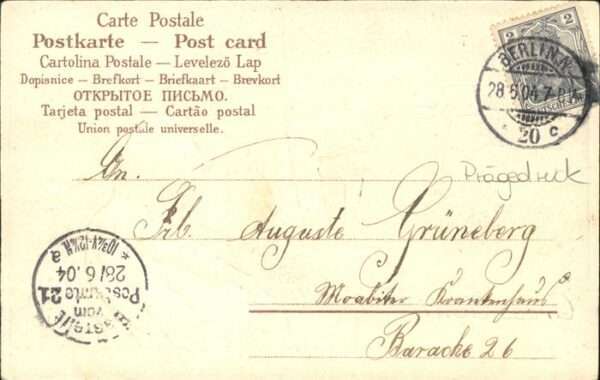 Carte Postale
Postkarte — Post card
Cartolina Postale — Levelező Lap
Dopisnice — Brefkort — Briefkaart — Brevkort
ОТКРЫТОЕ ПИСЬМО.
Tarjeta postal — Cartão postal
Union postale universelle.
2 2
BERLIN.N.
28.6.04.7-8
* 20 c
Prägedruck
An.
Frl. Auguste Grüneberg
Moabiter Krankenhaus
Baracke 26
vom
Postamte 21
28/6.04
* 10¾V-12¼N a